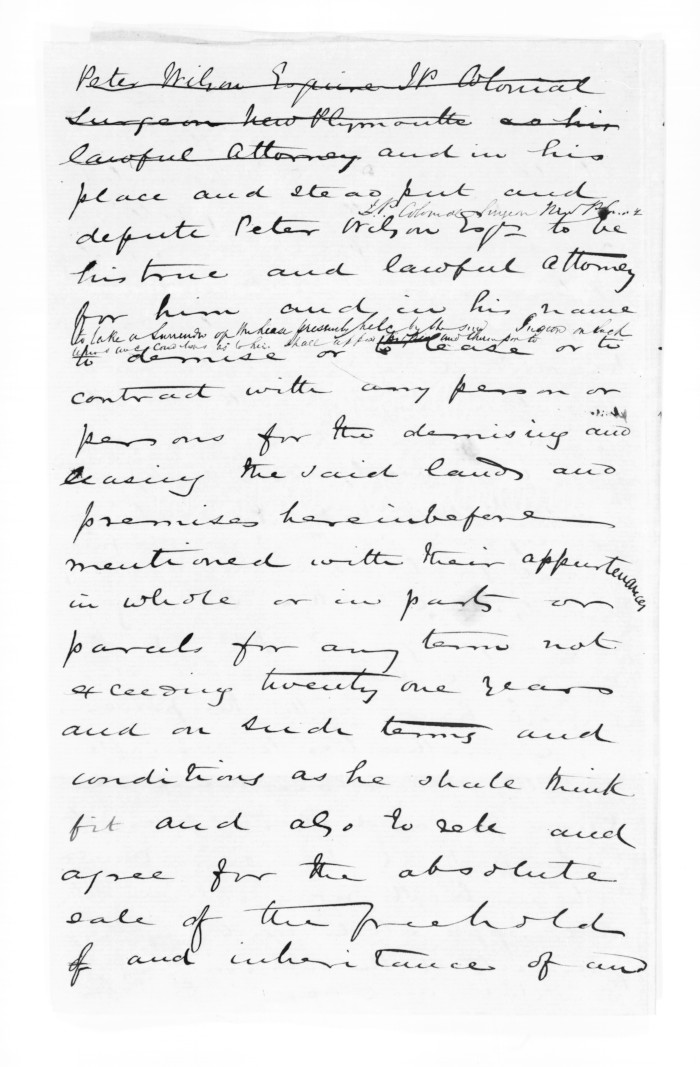 Peter Wilson Esquire JP Colonial
Surgeon New Plymouth as his
lawful Attorney and in his
place and stead put and
J.P. Colonial Surgeon New
depute Peter Wilson Esqre to be
his true and lawful Attorney
for him and in his name
to take a Surrender of the lease presently held by the said on such
terms and conditions as to him shall appear and thereupon to
to demise or to lease or to
contract with any person or
persons for the demising and
leasing the said lands and
premises hereinbefore
mentioned with their appurtenances
in whole or in parts or
parcels for any term not
exceeding twenty one years
and on such terms and
conditions as he shall think
fit and also to sell and
agree for the absolute
sale of the freehold
and inheritance of and